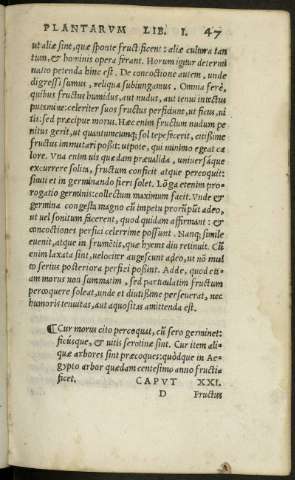 PLANTARVM LIB. I. 47
ut aliæ sint, quæ sponte fructificent: aliæ cultura tan
tum, & hominis opera ferant. Horum igitur determi
natio petenda hinc est. De concoctione autem, unde
digressi sumus, reliqua subiungamus. Omnia ferè,
quibus fructus humidus, aut nudus, aut tenui intectus
putamine: celeriter suos fructus perficiunt, ut ficus, ui
tis. sed præcipue morus. Hæc enim fructum nudum pe
nitus gerit, ut quantumcunq; sol tepefecerit, citissime
fructus immutari possit: utpote, qui minimo egeat ca
lore. Vna enim uis quædam præualida, uniuersáque
excurrere solita, fructum conficit atque percoquit:
simul et in germinando fieri solet. Lõga etenim pro-
rogatio germinis: collectum maximum facit. Vnde &
germina congesta magno cū impetu prorūpūt adeo,
ut uel sonitum facerent, quod quidam affirmant: &
concoctiones perfici celerrime possunt. Nanq; simile
euenit, atque in frumētis, quæ hyems diu retinuit. Cū
enim laxata sint, uelociter augescunt adeo, ut nō mul
to serius posteriora perfici possint. Adde, quod eti-
am morus non summatim, sed particulatim fructum
percoquere soleat, unde et diutissime perseuerat, nec
humoris tenuitas, aut aquositas amittenda est.
¶ Cur morus cito percoquat, cū sero germinet:
ficusque, & uitis serotinæ sint. Cur item ali-
quæ arbores sint præcoques: quòdque in Ae-
gypto arbor quædam centesimo anno fructi-
ficet. CAPVT XXI.
D Fructus